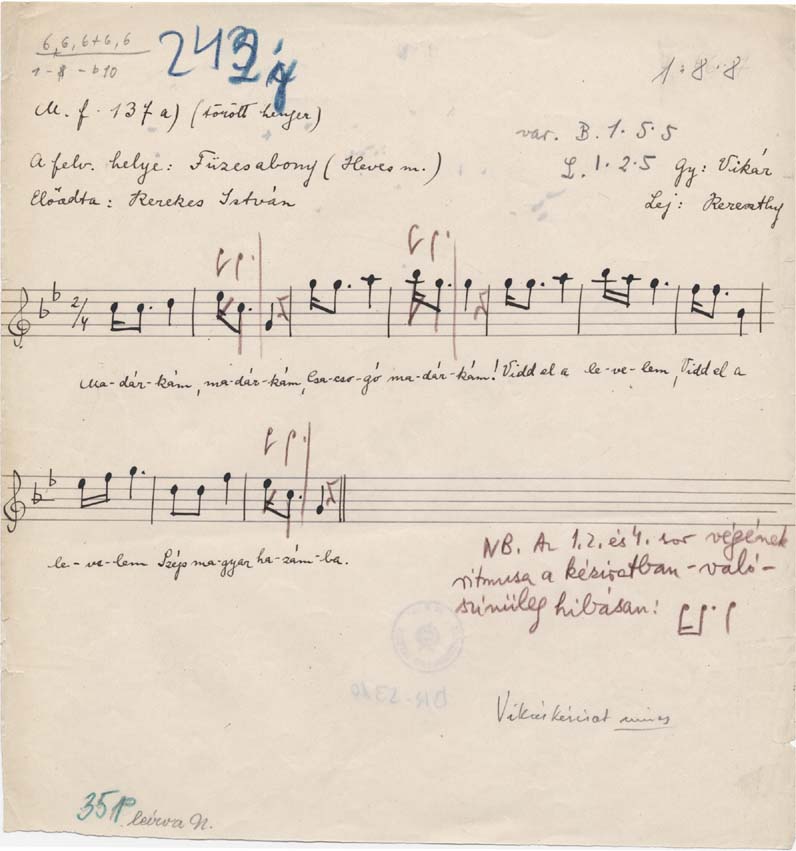 6, 6, 6+6, 6
1 - 8 - b10
1 · 8 · 8
M. f. 137 a) (törött henger)
var. B. 1. 5. 5
A felv. helye: Füzesabony (Heves m.)
L. 1. 2. 5 Gy: Vikár
Előadta: Kerekes István
Lej: Kereszthy
2/4
Ma-dár-kám, ma-dár-kám, Csa-cso-gó ma-dár-kám! Vidd el a le-ve-lem, Vidd el a
le-ve-lem Szép ma-gyar ha-zám-ba.
NB. Az 1. 2. és 4. sor végének
ritmusa a kéziratban - való-
szinüleg hibásan:
Vikárkézirat nincs
351 leírva N.